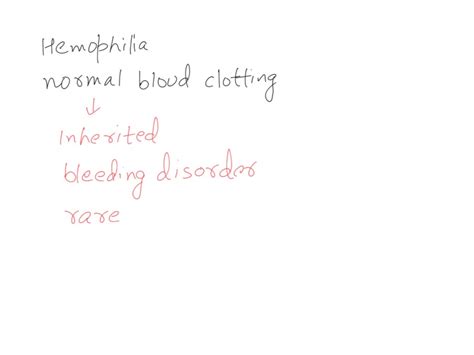 Hemophilia
normal blood clotting
↓
Inherited
bleeding disorder
rare